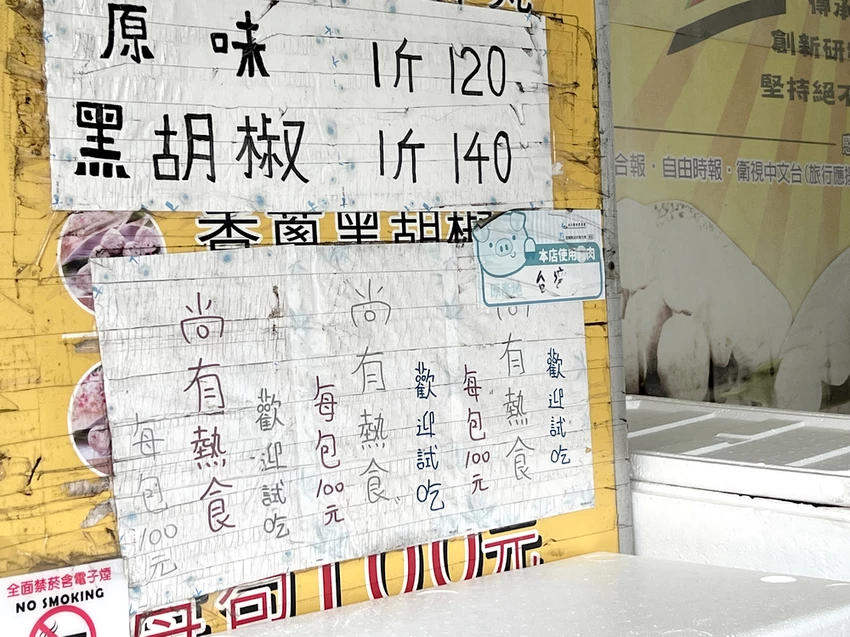 原味 1斤 120
黑胡椒 1斤 140
香菌黑胡椒
本店使用豬肉
台灣
尚有熱食
每包100元
歡迎試吃
尚有熱食
每包100元
歡迎試吃
尚有熱食
每包100元
歡迎試吃
100元
全面禁菸含電子煙
NO SMOKING
傳承
創新研
堅持絕不
合報・自由時報・衛視中文台(旅行應掛